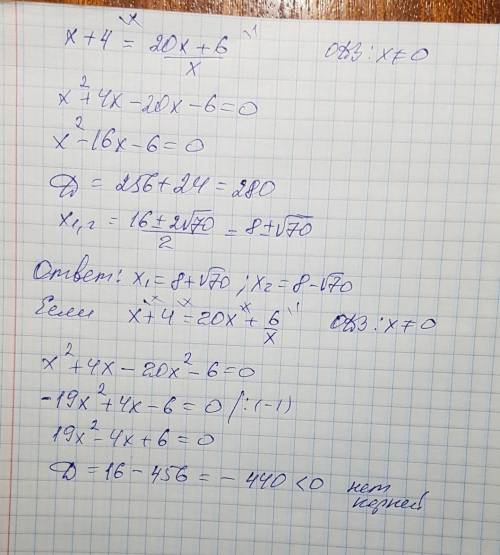 x + 4 = 20x + 6 / x ОДЗ: x ≠ 0
x² + 4x - 20x - 6 = 0
x² - 16x - 6 = 0
D = 256 + 24 = 280
x₁,₂ = 16 ± 2√70 / 2 = 8 ± √70
Ответ: x₁ = 8 + √70 ; x₂ = 8 - √70
Если x + 4 = 20x + 6/x ОДЗ: x ≠ 0
x² + 4x - 20x² - 6 = 0
-19x² + 4x - 6 = 0 /:(-1)
19x² - 4x + 6 = 0
D = 16 - 456 = - 440 < 0 нет
корней